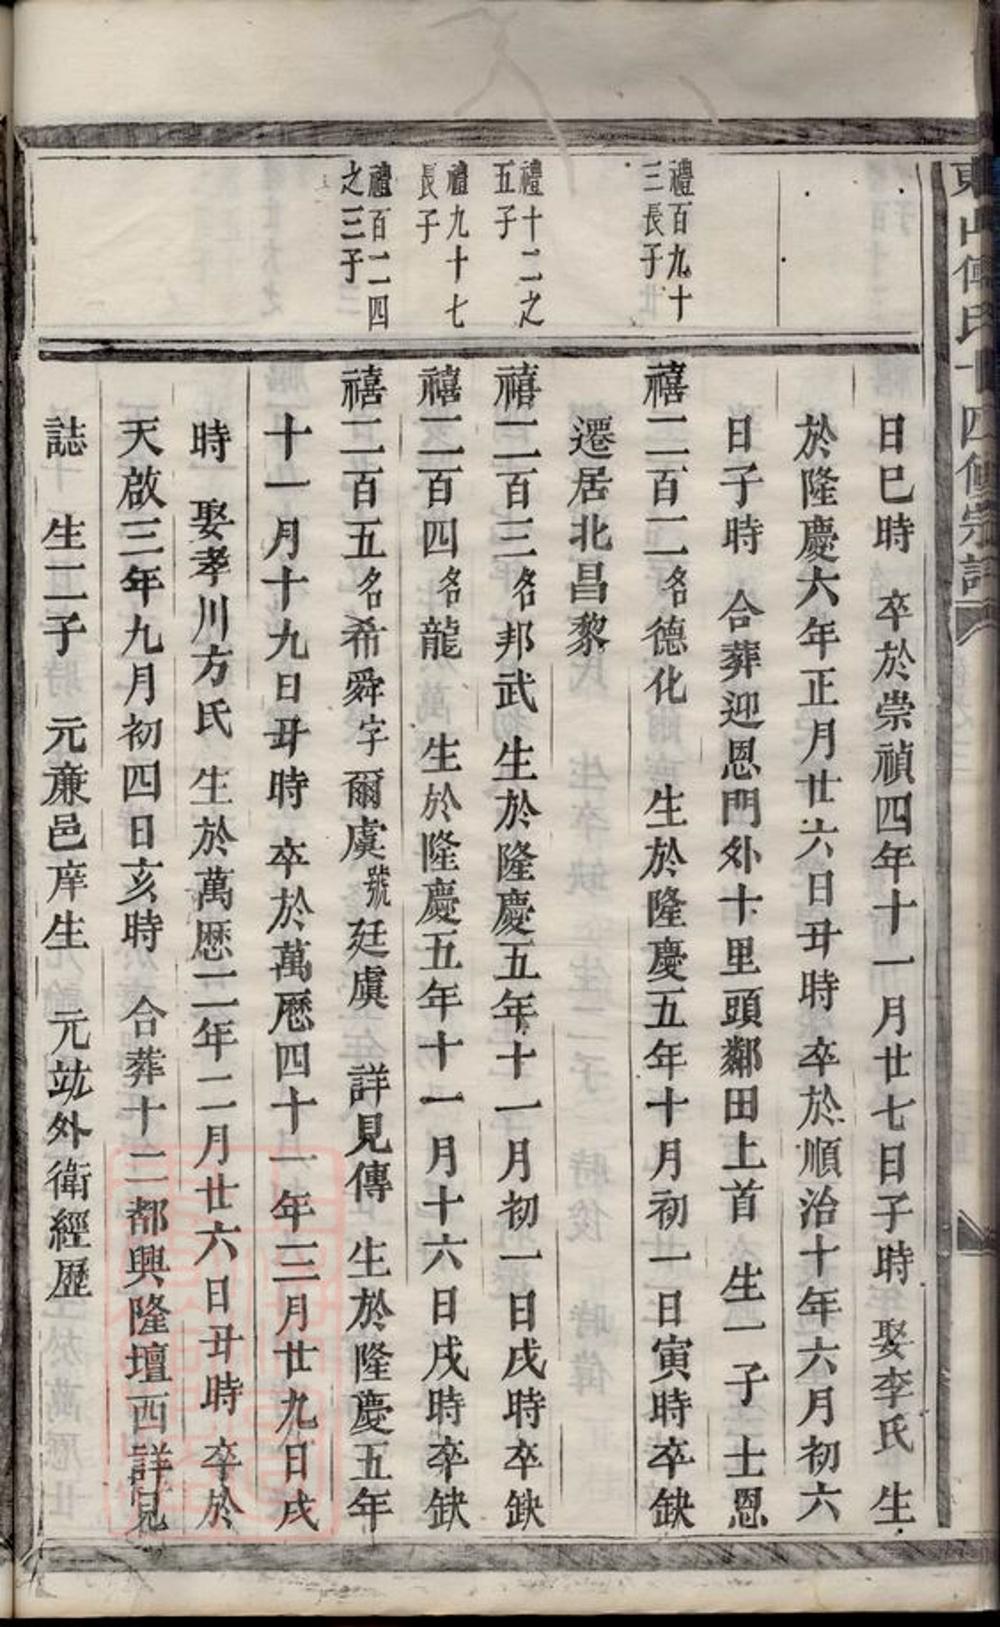 日巳時　卒於崇禎四年十一月廿七日子時娶李氏　生
於隆慶六年正月廿六日丑時　卒於順治十年六月初六
日子時　合葬迎恩門外十里頭鄰田上首　生一子　士恩
禮百九十
三長子
禧二百二名德化　生於隆慶五年十月初一日寅時卒缺
遷居北昌黎
禮十二之
五子
禧二百三名邦武　生於隆慶五年十一月初一日戌時卒缺
禮九十七
長子
禧二百四名龍　生於隆慶五年十一月十六日戌時卒缺
禮百二四
之三子
禧二百五名希舜字爾虞號廷虞　詳見傳　生於隆慶五年
十一月十九日丑時　卒於萬歷四十一年三月廿九日戌
時　娶孝川方氏　生於萬歷二年二月廿六日丑時　卒於
天啟三年九月初四日亥時　合葬十二都興隆壇西詳見
誌　生二子　元亷邑庠生　元竑外衛經歷